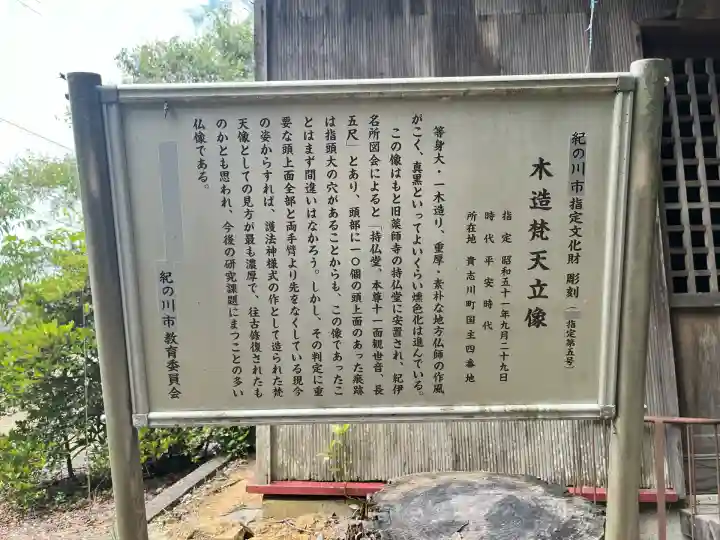 紀の川市指定文化財 彫刻(指定第五号)
木造梵天立像
指定 昭和五十一年九月二十九日
時代 平安時代
所在地 貴志川町国主四番地
等身大・一木造り、重厚・素朴な地方仏師の作風
がこく、真黒といってよいくらい燻色化は進んでいる。
この像はもと旧薬師寺の持仏堂に安置され、紀伊
名所図会によると「持仏堂、本尊十一面観世音、長
五尺」とあり、頭部に一〇個の頭上面のあった痕跡
は指頭大の穴があることからも、この像であったこ
とはまず間違いはなかろう。しかし、その判定に重
要な頭上面全部と両手臂より先をなくしている現今
の姿からすれば、護法神様式の作として造られた梵
天像としての見方が最も濃厚で、往古修復されたも
のかとも思われ、今後の研究課題にまつことの多い
仏像である。
紀の川市教育委員会